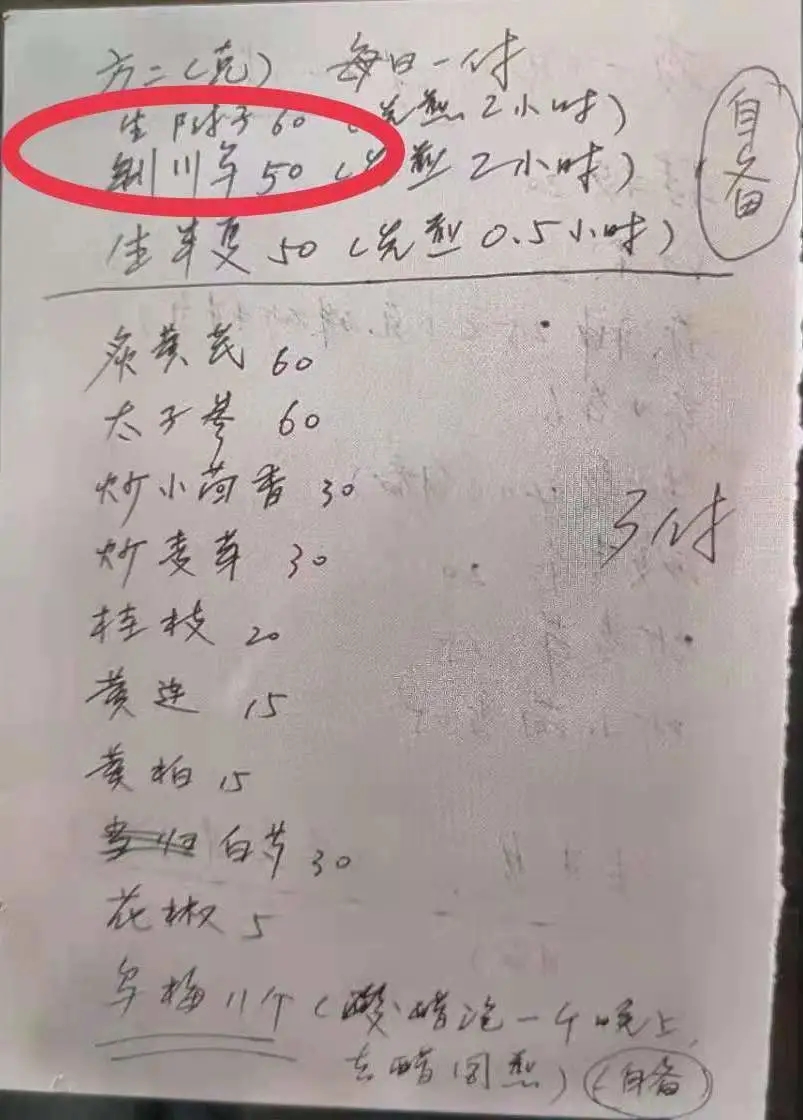 方二(克) 每日一付
生附子60(先煎2小时)
制川乌50(先煎2小时)
生半夏50(先煎0.5小时)
自备
炙黄芪 60
太子参 60
炒小茴香 30
炒麦芽 30
3付
桂枝 20
黄连 15
黄柏 15
白芍 30
花椒 5
乌梅 11个(酸醋泡一个晚上,
去醋同煎)(自备)